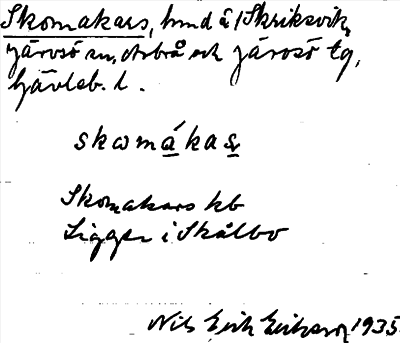 Skomakars, hmd å /Skriksvik,
Järvsö sn, Arbrå och Järvsö tg,
Gävleb. l.
skωmákaṣ
Skomakars kb
Ligger i Skålbo
Nils Erik Eriksson 1935